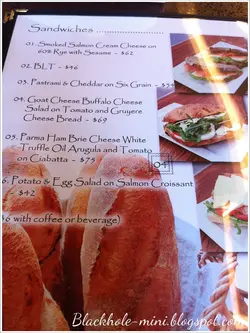 Sandwiches ..............
01. Smoked Salmon Cream Cheese on
60% Rye with Sesame - $62
02. BLT - $46
03. Pastrami & Cheddar on Six Grain - $54
04. Goat Cheese Buffalo Cheese
Salad on Tomato and Gruyere
Cheese Bread - $69
05. Parma Ham Brie Cheese White
Truffle Oil Arugula and Tomato
on Ciabatta - $75
04
6. Potato & Egg Salad on Salmon Croissant
- $42
$6 with coffee or beverage)
Blackhole-mini.blogspot.com